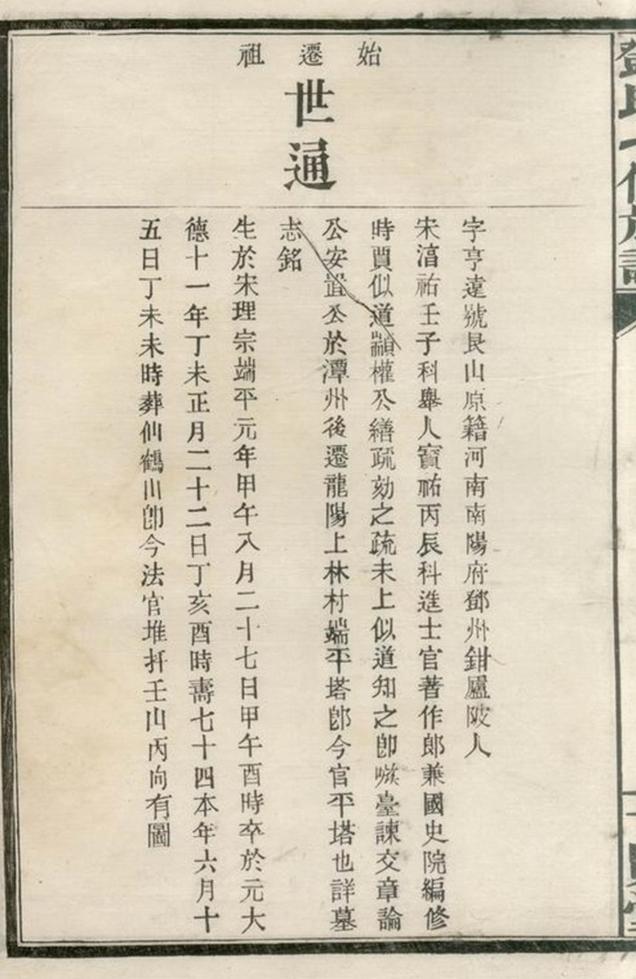 鄧氏七修族譜
始遷祖
世通
字亨達號艮山原籍河南南陽府鄧州鉗廬陂人
宋湻祐壬子科舉人寶祐丙辰科進士官著作郎兼國史院編修
時賈似道顓權公繕疏劾之疏未上似道知之卽嗾臺諫交章論
公安置公於潭州後遷龍陽上林村端平塔卽今官平塔也詳墓
志銘
生於宋理宗端平元年甲午八月二十七日甲午酉時卒於元大
德十一年丁未正月二十二日丁亥酉時壽七十四本年六月十
五日丁未未時葬仙鶴川卽今法官堆扦壬山丙向有圖